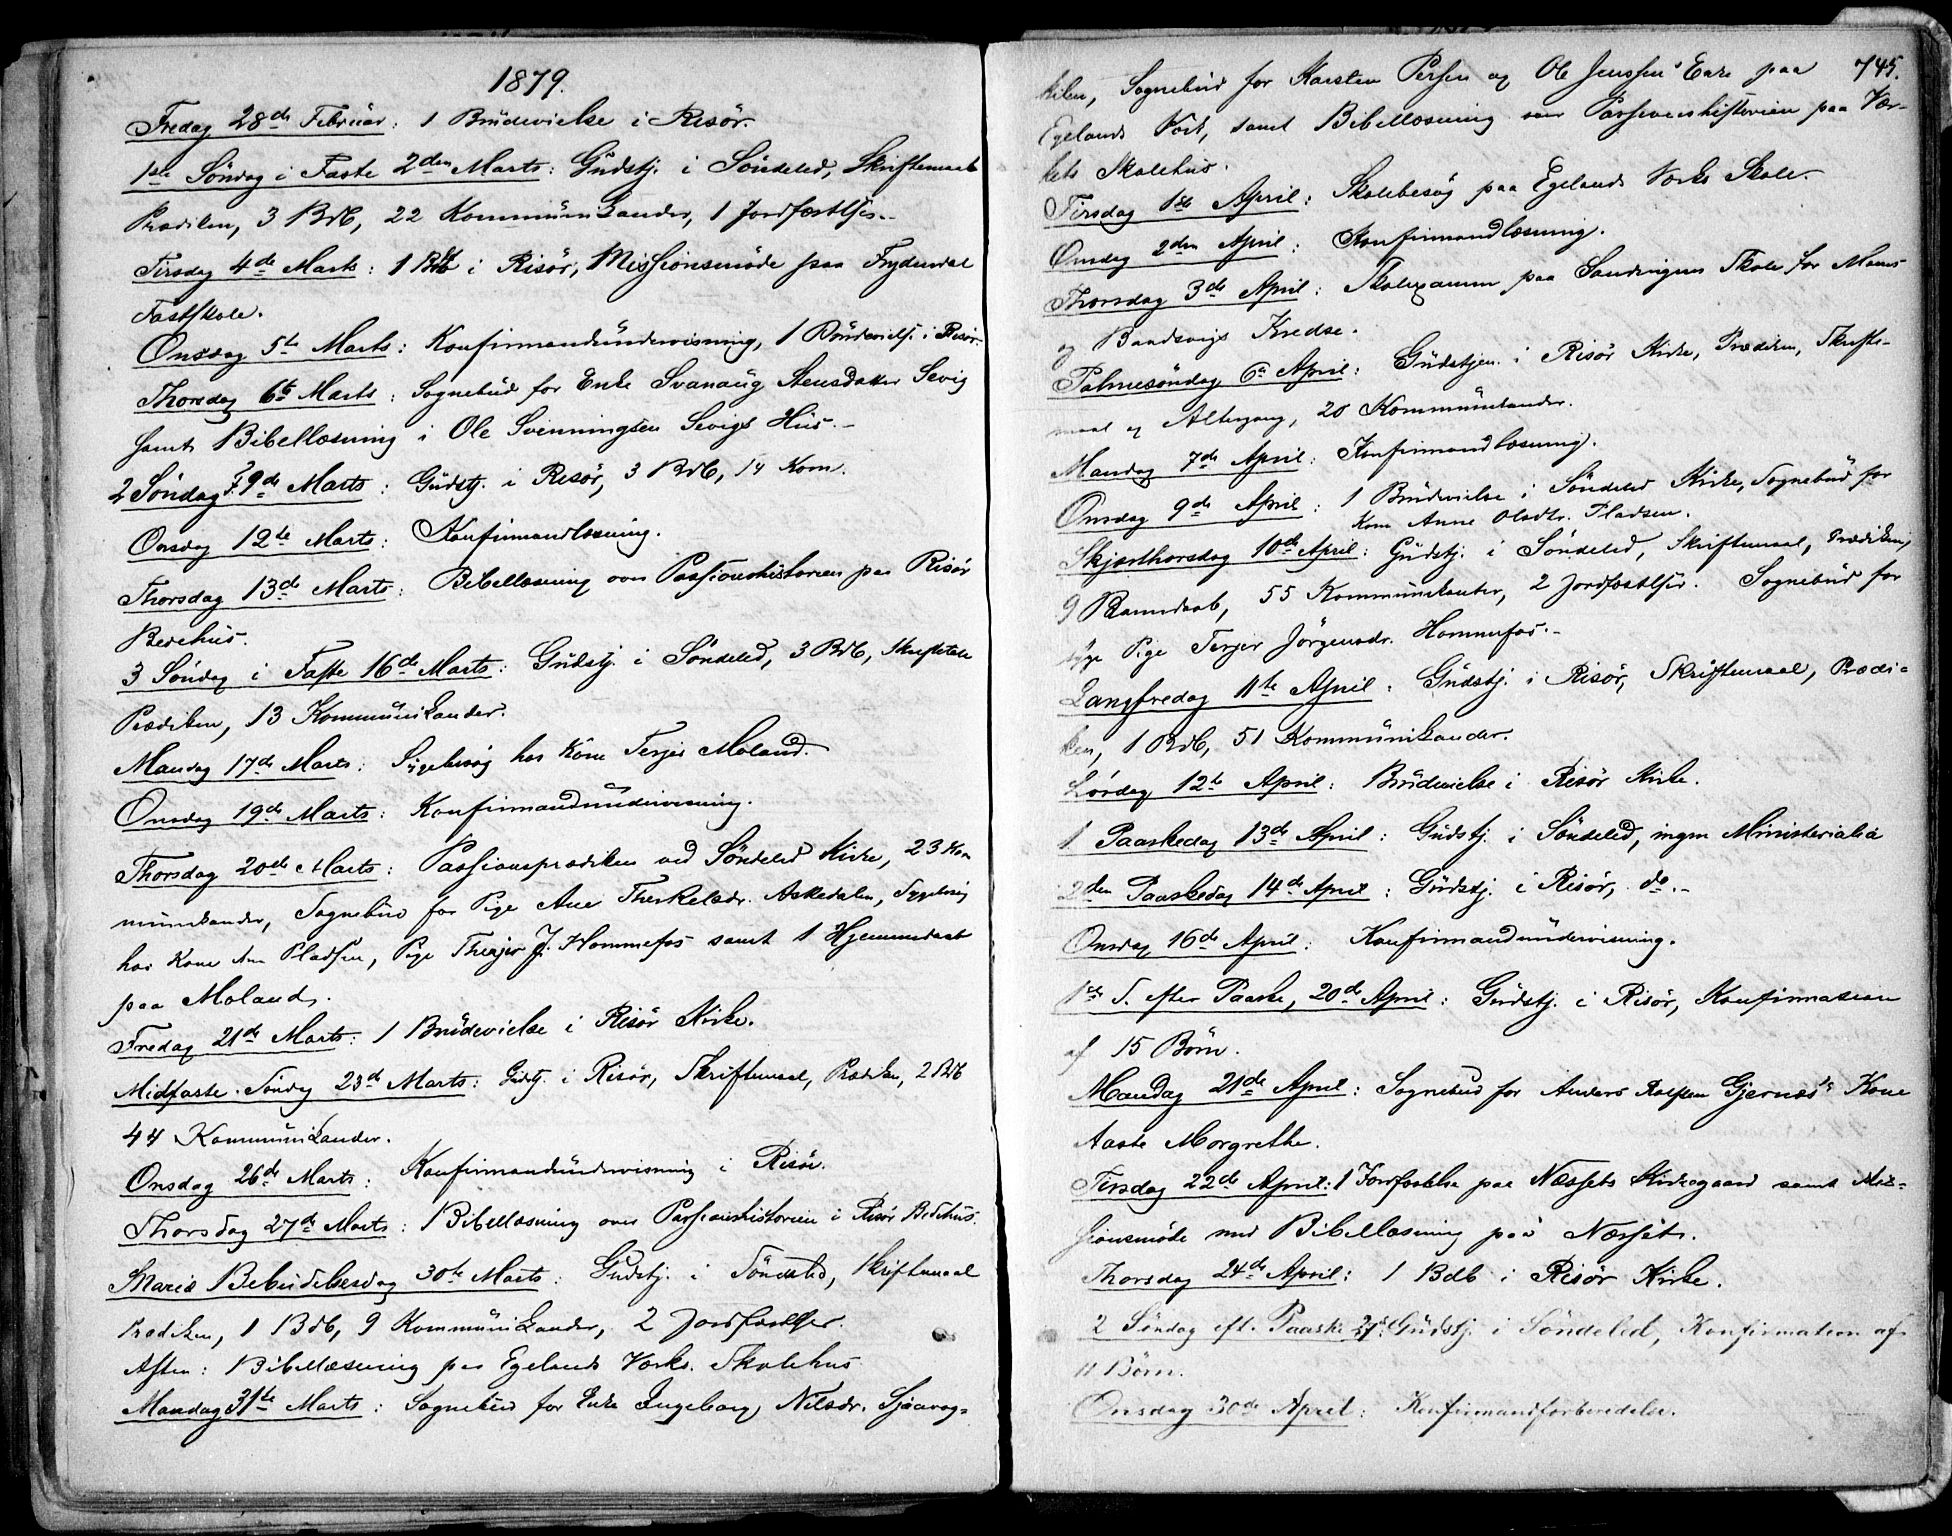 1879.
Fredag 28de Februar: 1 Brudevielse i Risør.
1ste Søndag i Faste 2den Marts: Gudstj. i Søndeled, Skriftemaal
Prædiken, 3 Bdb, 22 Kommunikander, 1 Jordfæstlse.
Tirsdag 4de Marts: 1 Bdb i Risør, Missionsmøde paa Frydendal
Fastskole.
Onsdag 5te Marts: Konfirmandundervisning, 1 Brudevielse i Risør
Thorsdag 6te Marts: Sognebud for Enke Svanaug Stensdatter Sevig
samt Bibellæsning i Ole Svenningsen Sevigs Hus.
2 Søndag i F. 9de Marts: Gudstj. i Risør, 3 Bdb, 14 Kom.
Onsdag 12te Marts: Konfirmandlæsning.
Thorsdag 13de Marts: Bibellæsning over Passionshistorien paa Risør
Bedehus.
3 Søndag i Faste 16de Marts: Gudstj. i Søndeled, 3 Bdb, Skriftetale
Prædiken, 13 Kommunikander.
Mandag 17de Marts: Sygebesøg hos Kone Terjer Moland.
Onsdag 19de Marts: Konfirmandundervisning.
Thorsdag 20de Marts: Passionsprædiken ved Søndeled Kirke, 23 Kom
munikander, Sognebud for Pige Ane Therkelsdr. Askedalen, Sygebesøg
hos Kone Ane Pladsen, Pige Therjer J. Hommefos samt 1 Hjemmedaab
paa Moland.
Fredag 21de Marts: 1 Brudevielse i Risør Kirke.
Midfaste Søndag 23de Marts: Gudstj. i Risør, Skriftemaal, Prædiken, 2 Bdb
44 Kommunikander.
Onsdag 26de Marts: Konfirmandundervisning i Risør.
Thorsdag 27de Marts: Bibellæsning over Passionshistorien i Risør Bedehus.
Mariæ Bebudelsesdag 30te Marts: Gudstj. i Søndeled, Skriftemaal
Prædiken, 1 Bdb, 9 Kommunikander, 2 Jordfæstlser.
Aften: Bibellæsning paa Egelands Værks Skolehus
Mandag 31te Marts: Sognebud for Enke Ingeborg Nilsdr. Sjaavog-
745.
kilen, Sognebud for Karsten Persen og Ole Jenssens Enke paa
Egelands Værk, samt Bibellæsning over Passionshistorien paa Vær-
kets Skolehus.
Tirsdag 1ste April: Skolebesøg paa Egelands Værks Skole.
Onsdag 2den April: Konfirmandlæsning.
Thorsdag 3de April: Skolexamen paa Sandvigens Skole for
og Bandsvigs Kredse.
Palmesøndag 6te April: Gudstjen. i Risør Kirke, Prædiken, Skrifte-
maal og Altergang, 20 Kommunikander.
Mandag 7de April: Konfirmandlæsning.
Onsdag 9de April: 1 Brudevielse i Søndeled Kirke, Sognebud for
Kone Anne Olsdtr. Pladsen.
Skjærthorsdag 10de April: Gudstj. i Søndeled, Skriftemaal, Prædiken,
9 Barnedaab, 55 Kommunikanter, 2 Jordfæstlser. Sognebud for
syge Pige Terjer Jørgensdr. Hommefos.
Langfredag 11te April: Gudstj. i Risør, Skriftemaal, Prædi-
ken, 1 Bdb, 51 Kommunikander.
Lørdag 12te April: Brudevielse i Risør Kirke.
1 Paaskedag 13de April: Gudstj. i Søndeled, ingen Ministerialia
2den Paaskedag 14de April: Gudstj. i Risør, do.
Onsdag 16de April: Konfirmandundervisning.
1ste S. efter Paaske, 20de April: Gudstj. i Risør, Konfirmation
af 15 Børn.
Mandag 21de April: Sognebud for Anders Rolfsen Gjernæs's Kone
Aaste Margrethe.
Tirsdag 22de April: 1 Jordfæstelse paa Næssets Kirkegaard samt Mis-
sionsmøde med Bibellæsning paa Næsset.
Thorsdag 24de April: 1 Bdb i Risør Kirke.
2 Søndag eft. Paaske 27de Gudstj. i Søndeled, Konfirmation af
11 Børn.
Onsdag 30de April: Konfirmandforberedelse.